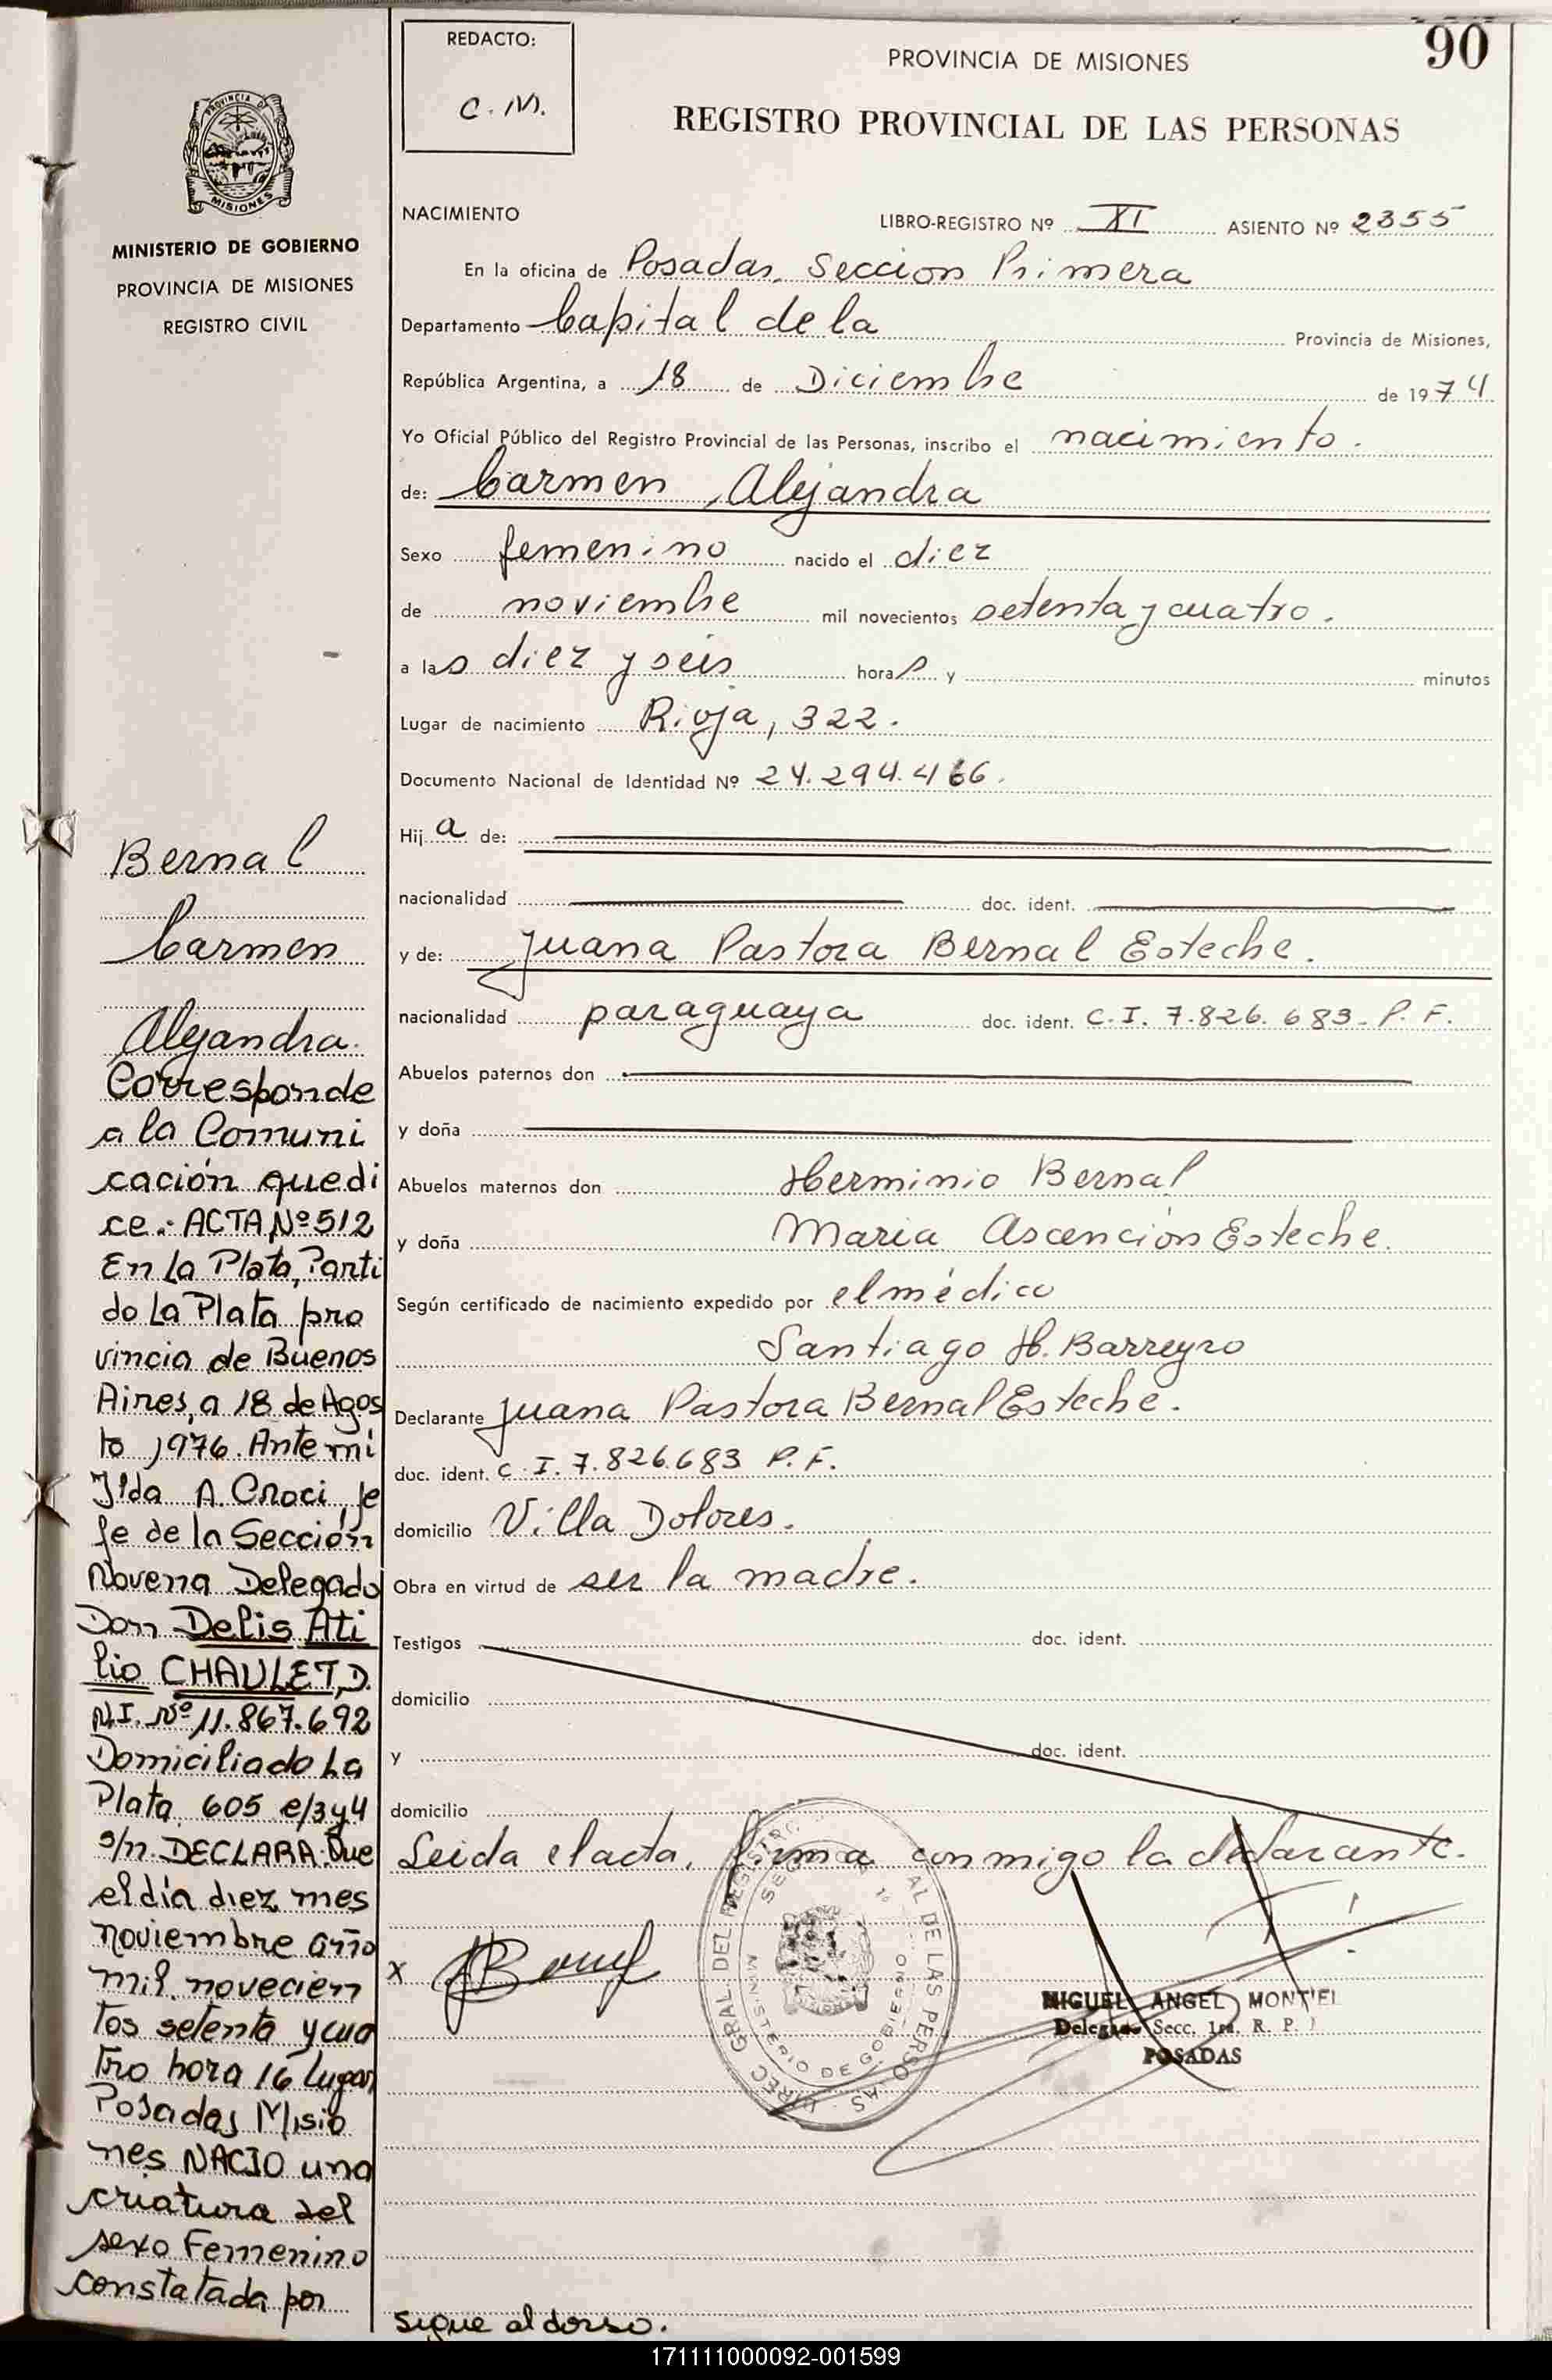 90
REDACTO:
C. M.
PROVINCIA DE MISIONES
REGISTRO PROVINCIAL DE LAS PERSONAS
PROVINCIA DE
MISIONES
MINISTERIO DE GOBIERNO
PROVINCIA DE MISIONES
REGISTRO CIVIL
NACIMIENTO
LIBRO-REGISTRO Nº XI ASIENTO Nº 2355
En la oficina de Posadas, Seccion Primera
Departamento Capital de la Provincia de Misiones,
República Argentina, a 18 de Diciembre de 1974
Yo Oficial Público del Registro Provincial de las Personas, inscribo el nacimiento.
de: Carmen, Alejandra
Sexo femenino nacido el diez
de noviembre mil novecientos setenta y cuatro.
a las diez y seis horas y minutos
Lugar de nacimiento Rioja, 322.
Documento Nacional de Identidad Nº 24.294.466.
Hija de:
nacionalidad doc. ident.
y de: Juana Pastora Bernal Esteche.
nacionalidad paraguaya doc. ident. C.I. 7.826.683. P. F.
Abuelos paternos don
y doña
Abuelos maternos don Herminio Bernal
y doña Maria Ascención Esteche.
Según certificado de nacimiento expedido por el médico
Santiago H. Barreyro
Declarante Juana Pastora Bernal Esteche.
doc. ident. C.I. 7.826.683 P. F.
domicilio Villa Dolores.
Obra en virtud de ser la madre.
Testigos doc. ident.
domicilio
y doc. ident.
domicilio
Leida el acta, firma conmigo la declarante.
x
DIREC GRAL DEL REGISTRO AL DE LAS PERSONAS
MINISTERIO DE GOBIERNO
MIGUEL ANGEL MONTIEL
Delegado Secc. 1ra. R. P.
POSADAS
Bernal
Carmen
Alejandra.
Corresponde
a la Comuni
cación que di
ce.: ACTA Nº 512
En La Plata, Parti
do La Plata pro
vincia de Buenos
Aires, a 18 de Agos
to 1976. Ante mi
Ilda A. Croci, je
fe de la Sección
Novena Delegado
Don Delis Ati
lio CHAULET, D.
N.I. Nº 11.867.692
Domiciliado La
Plata 605 e/3y4
s/n. DECLARA: Que
el día diez mes
noviembre año
mil novecien
tos setenta y cua
tro hora 16 lugar
Posadas Misio
nes NACIO una
criatura del
sexo Femenino
constatada por
Sigue al dorso.
171111000092-001599